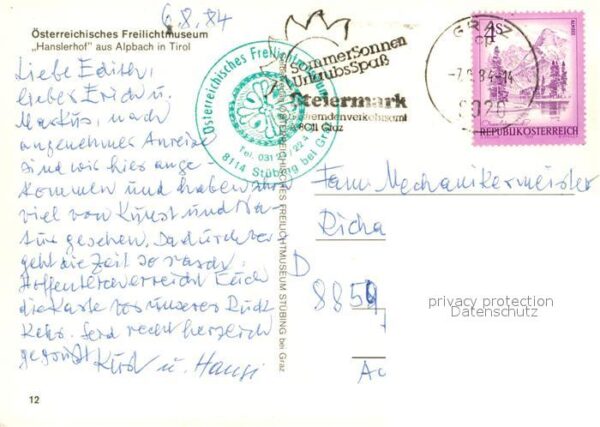 6.8.84
Österreichisches Freilichtmuseum
„Hanslerhof" aus Alpbach in Tirol
Liebe Edith,
lieber Erich u.
Markus, nach
angenehmer Anreise
sind wir hier ange-
kommen und haben
viel von Kunst und Na-
tur gesehen. Dadurch ver-
geht die Zeit so rasch.
Hoffentlich erreicht Euch
die Karte vor unseres Rück-
kehr. Seid recht herzlich
gegrüßt
u. Hansi
12
Österreichisches Freilichtmuseum
Tel. 031
8114 Stübing bei Graz
ÖSTERREICHISCHES FREILICHTMUSEUM STÜBING bei Graz
SommerSonnen
UrlaubsSpaß
Steiermark
Fremdenverkehrsamt
8011 Graz
GRAZ
84-14
8020
4S
REPUBLIK ÖSTERREICH
Fam. Mechanikermeister
Richa
D
8859
privacy protection
Datenschutz